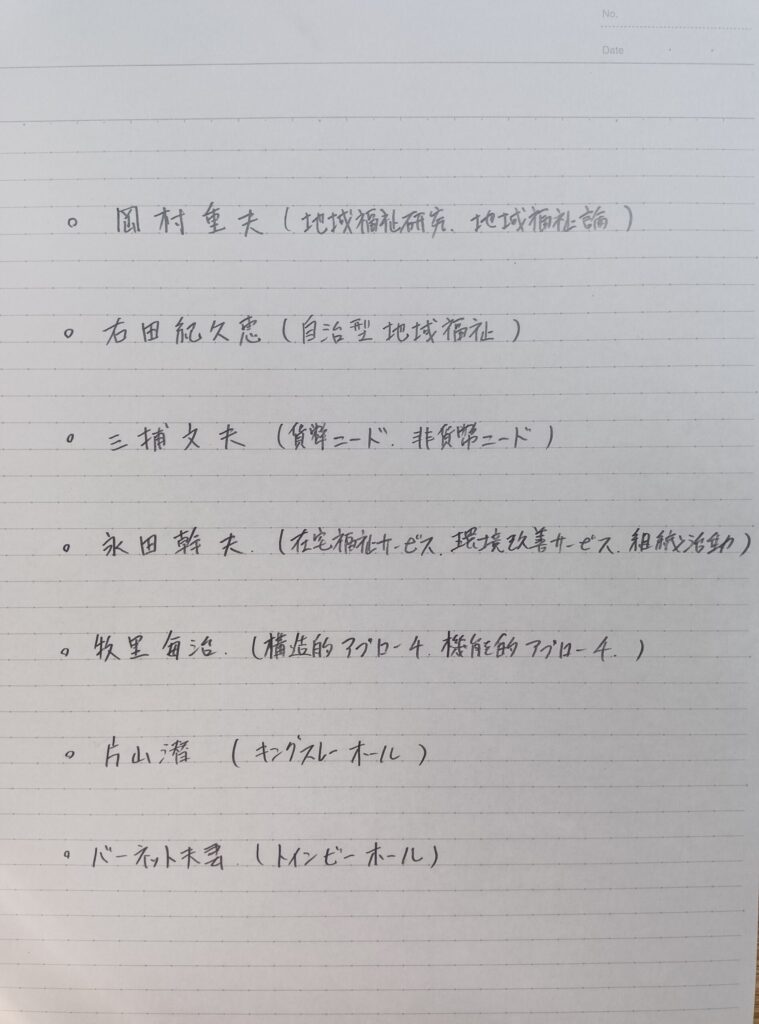 No.
Date
○ 岡村重夫(地域福祉研究、地域福祉論)
○ 右田紀久恵(自治型地域福祉)
○ 三浦文夫(貨幣ニード、非貨幣ニード)
○ 永田幹夫.(在宅福祉サービス、環境改善サービス、組織化活動)
○ 牧里毎治.(構造的アプローチ、機能的アプローチ.)
○ 片山潜(キングスレーホール)
○ バーネット夫妻(トインビーホール)